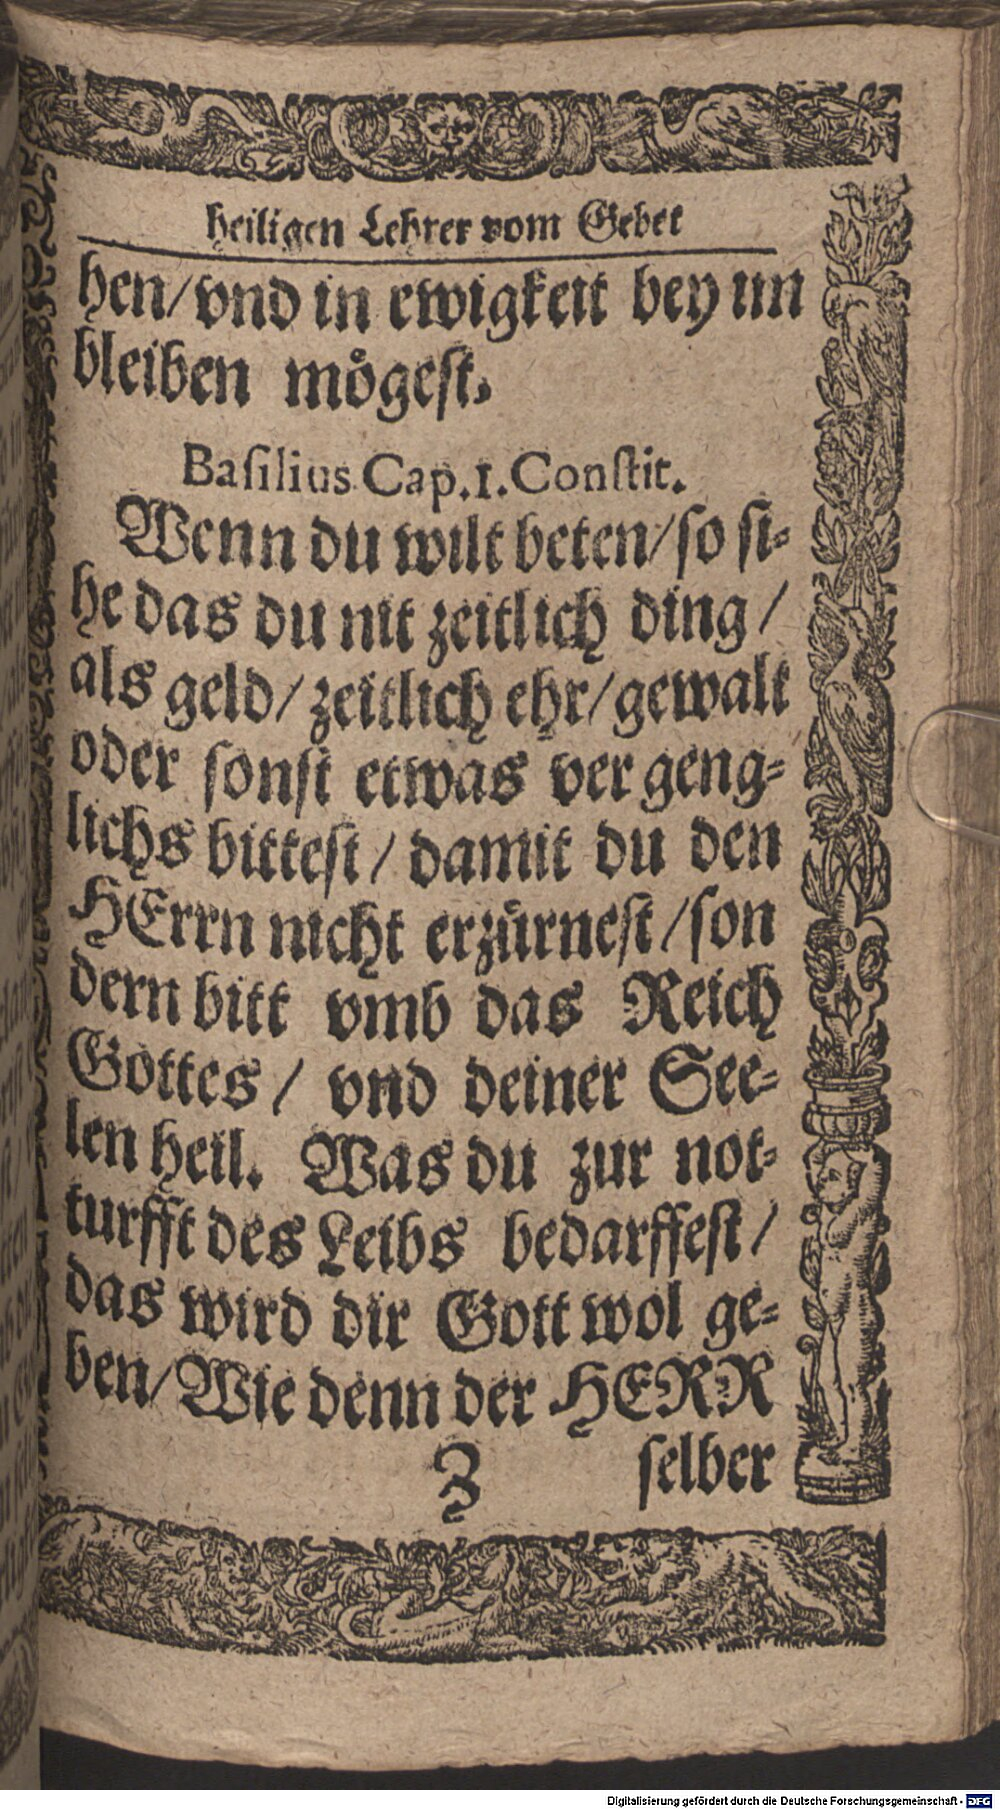 heiligen Lehrer vom Gebet
hen/vnd in ewigkeit bey im
bleiben mo&#868;gest.
Basilius Cap.1.Constit.
Wenn du wilt beten/so si-
he das du nit zeitlich ding/
als geld/zeitlich ehr/gewalt
oder sonst etwas vergeng-
lichs bittest/damit du den
HErrn nicht erzürnest/son
dern bitt vmb das Reich
Gottes/vnd deiner See-
len heil. Was du zur not-
turfft des Leibs bedarffest/
das wird dir Gott wol ge-
ben/Wie denn der HERR
Z selber
Digitalisierung gefördert durch die Deutsche Forschungsgemeinschaft - DFG